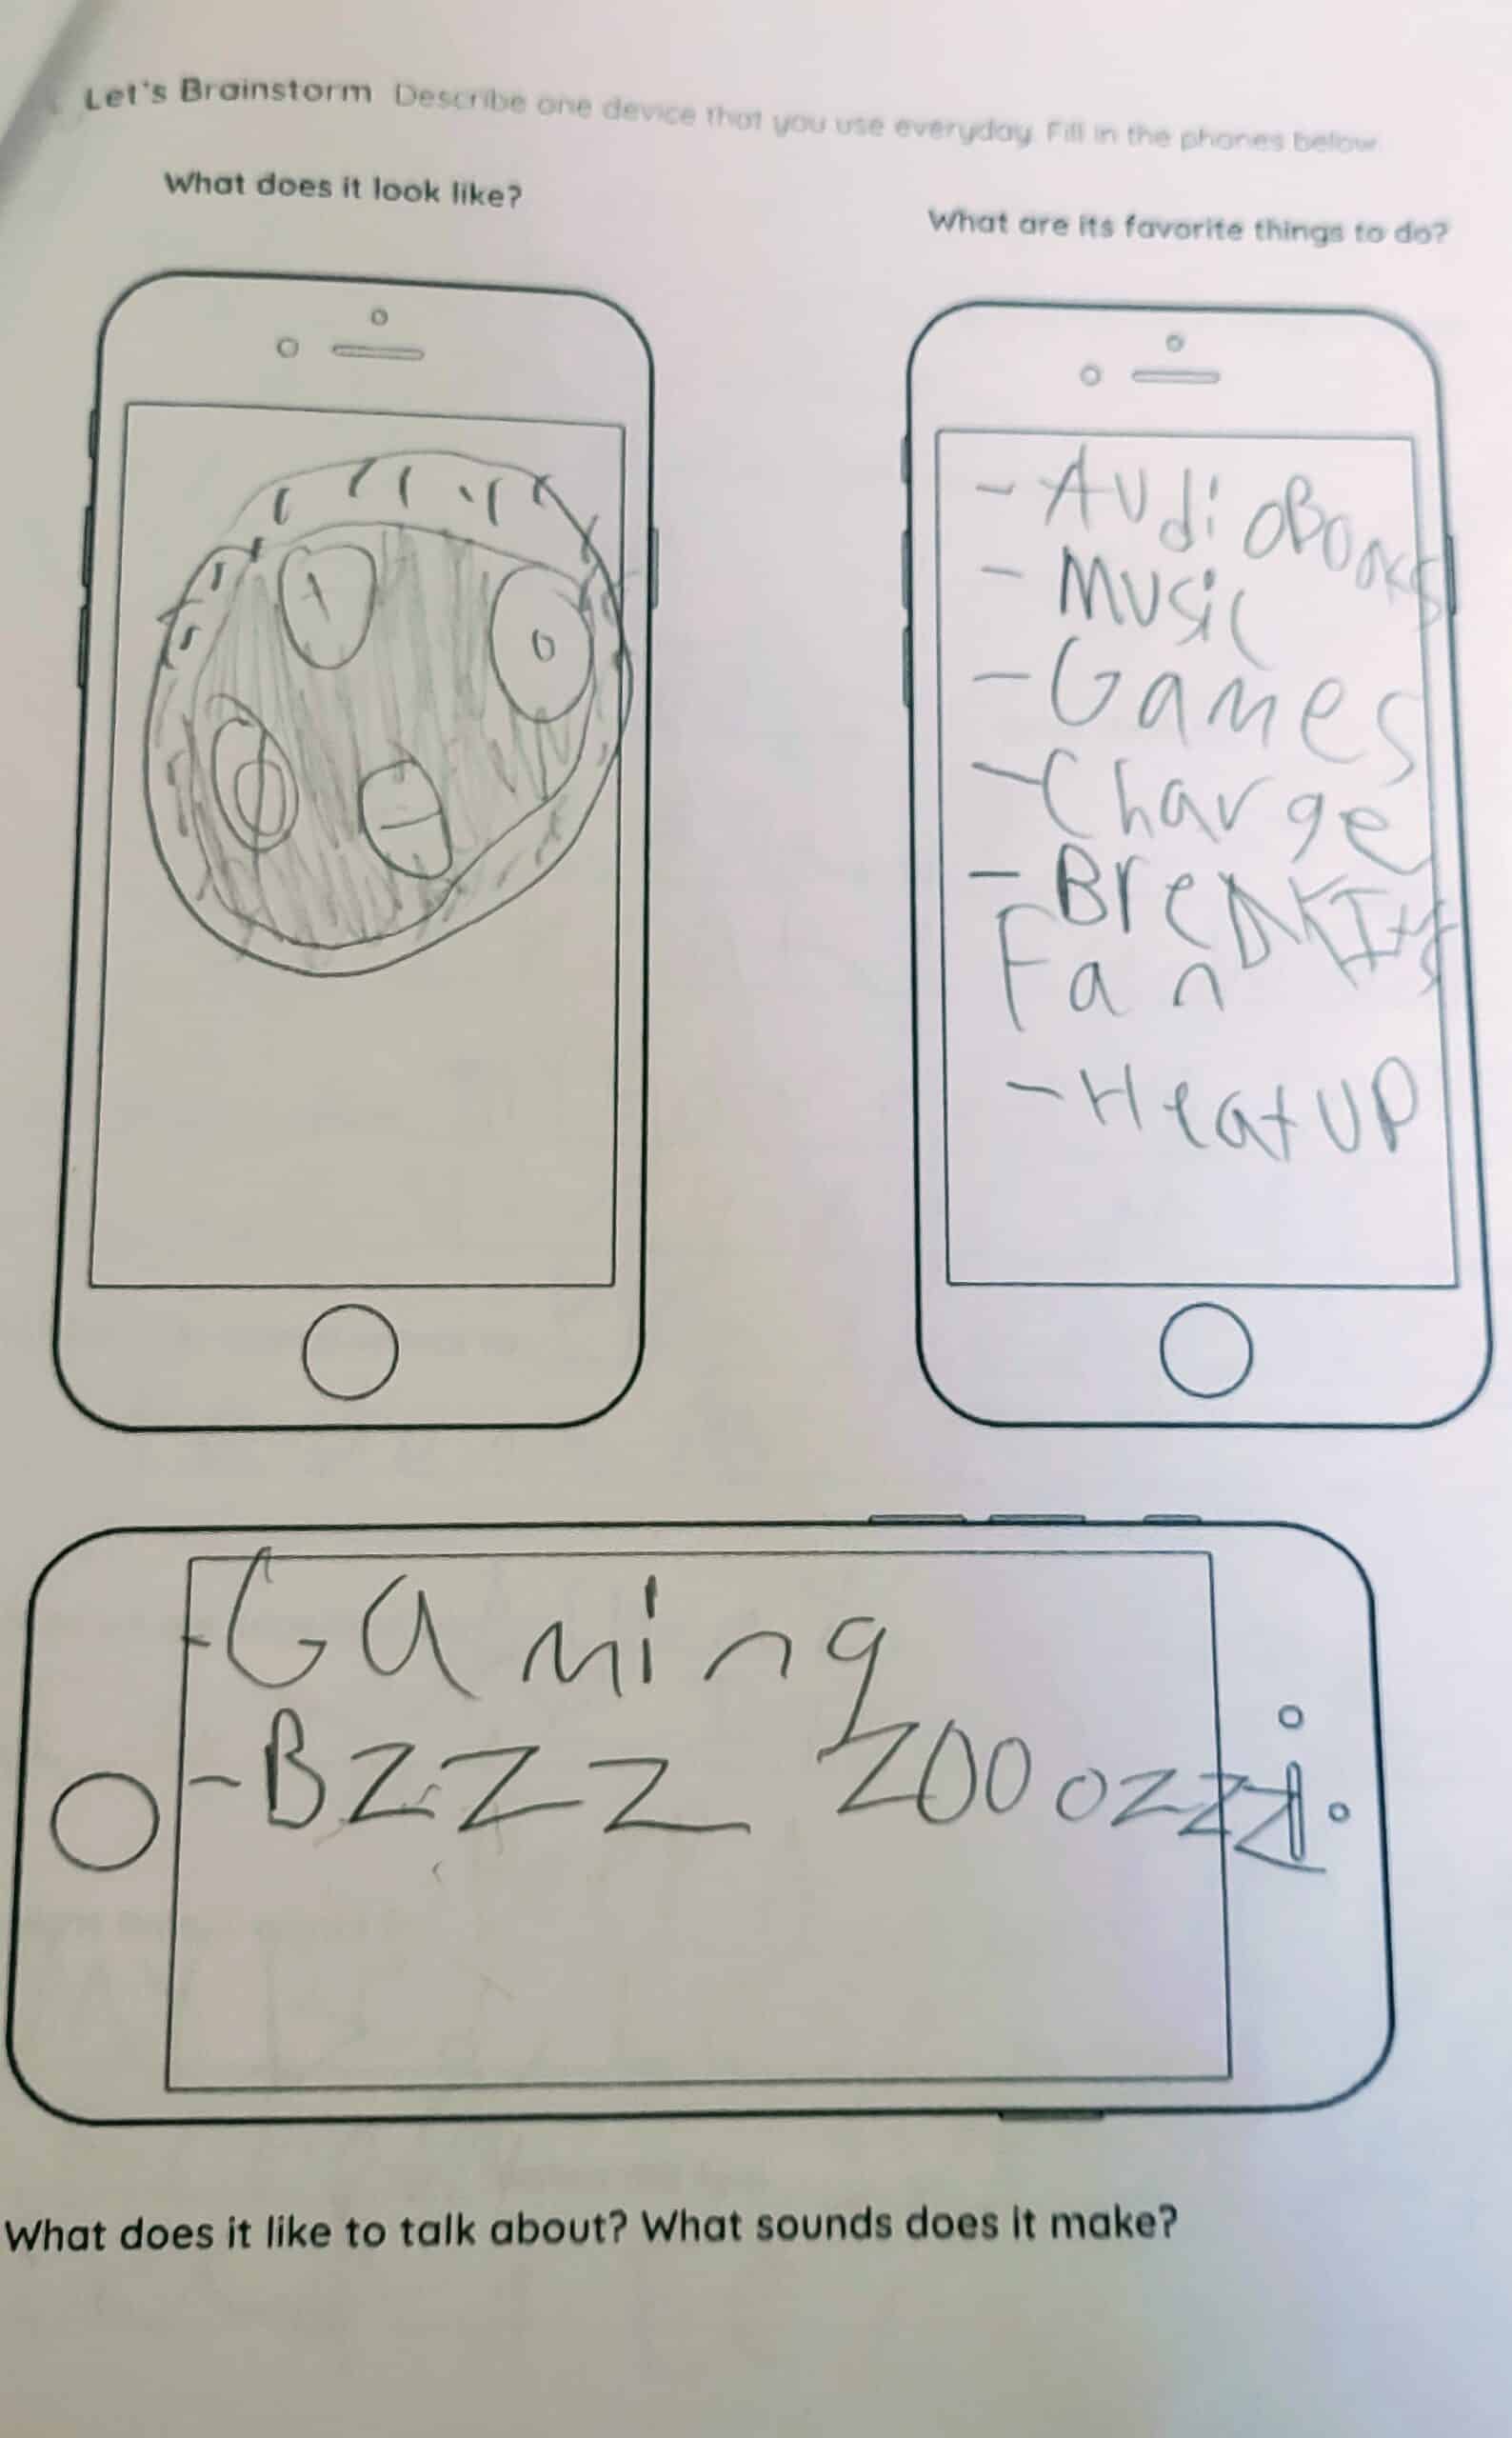 Let's Brainstorm Describe one device that you use everyday. Fill in the phones below.
What does it look like?
What are its favorite things to do?
- AudioBooks
- Music
- Games
- Charge
- BreAKIts
Fan
- Heat UP
- Gaming
- BZZZ ZOOOZZZ
What does it like to talk about? What sounds does it make?